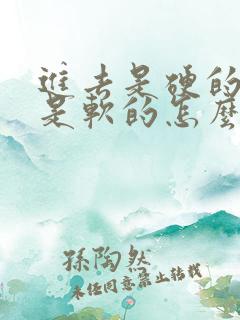 進去是硬的
是軟的怎麼
孫陶然
未经同意禁止转载